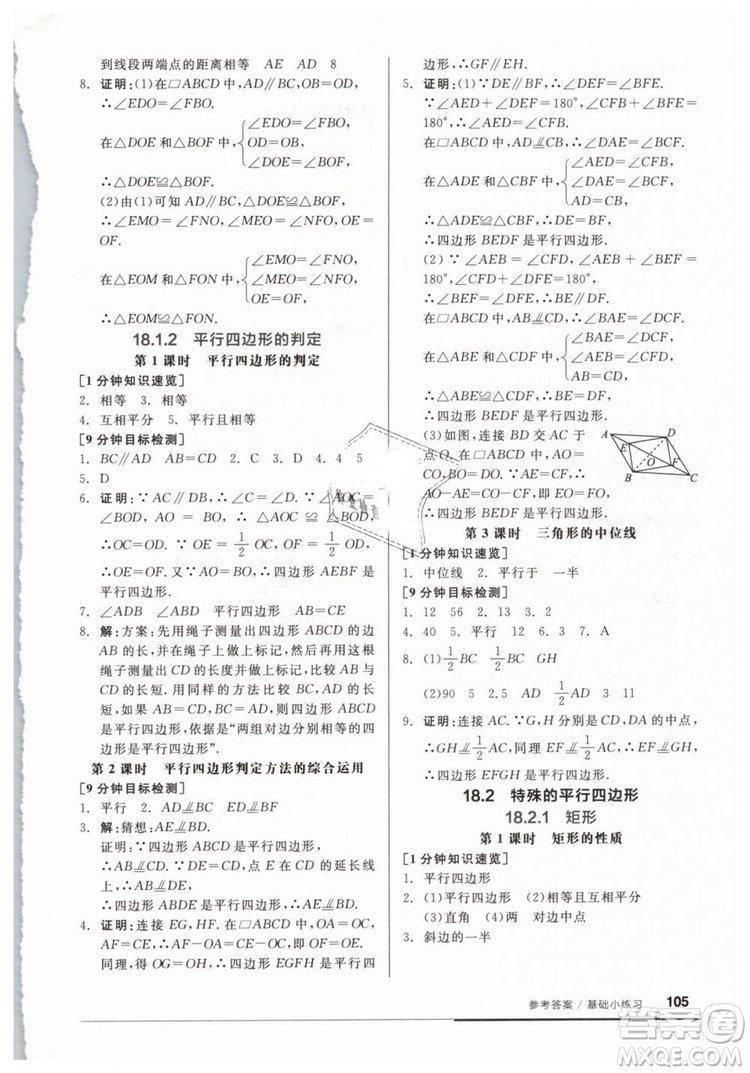 到线段两端点的距离相等 AE AD 8
8. 证明:(1)在□ABCD中,AD∥BC,OB=OD.
∴∠EDO=∠FBO.
在△DOE和△BOF中,{∠EDO=∠FBO,
OD=OB,
∠DOE=∠BOF,
∴△DOE≌△BOF.
(2)由(1)可知AD∥BC,△DOE≌△BOF,
∴∠EMO=∠FNO,∠MEO=∠NFO,OE=OF.
在△EOM和△FON中,{∠EMO=∠FNO,
∠MEO=∠NFO,
OE=OF,
∴△EOM≌△FON.
18.1.2 平行四边形的判定
第1课时 平行四边形的判定
[1分钟知识速览]
2. 相等 3. 相等
4. 互相平分 5. 平行且相等
[9分钟目标检测]
1. BC∥AD AB=CD 2. D 3. D 4. 4 5
5. D
6. 证明:∵AC∥DB,∴∠C=∠D.∵∠AOC=
∠BOD,AO=BO,∴△AOC≌△BOD,
∴OC=OD.∵OE=1/2OC,OF=1/2OD,
∴OE=OF.又∵AO=BO,∴四边形AEBF是
平行四边形.
7. ∠ADB ∠ABD AB=CE
8. 解:方案:先用绳子测量出四边形ABCD的边
AB的长,并在绳子上做出标记,再用这根
绳子测量出CD的长度并做上标记,比较AB与
CD的长短.用同样的方法比较BC与AD的长
短,如果AB=CD,BC=AD,则四边形ABCD
是平行四边形,依据是“两组对边分别相等的四
边形是平行四边形”.
第2课时 平行四边形判定方法的综合运用
[9分钟目标检测]
1. 平行 2. AD⫫BC AD⫫EF
3. 解:猜想:AE⫫CD.
证明:∵四边形ABCD是平行四边形,
∴AB⫫CD.∵BD∥AE,点E在CD的延长线
上,∴四边形ABDE是平行四边形,
∴AB⫫DE.∴AE⫫CD.
4. 证明:连接EG,HF.在□ABCD中,OA=OC,
∵AF=CE,∴AF-OA=CE-OC.∴OF=OE.
同理,得OG=OH.∴四边形EGFH是平行四
边形,∴GF∥EH.
5. 证明:(1)∵DE∥BF,∴∠DEF=∠BFE.
∵∠AED+∠DEF=180°,∠CFB+∠BFE=
180°,∴∠AED=∠CFB.
在△AED和△CFB中,{∠AED=∠CFB,
∠DAE=∠BCF,
AD=CB,
∴△AED≌△CFB,∴DE=BF.
∴四边形BEDF是平行四边形.
(2)∵∠AEB=∠CFD,∠AEB+∠BEF=
180°,∠CFD+∠DFE=180°,
∴∠BEF=∠DFE.∴BE∥DF.
在△ABE和△CDF中,{∠AEB=∠CFD,
∠BAE=∠DCF,
AB=CD,
∴△ABE≌△CDF.∴BE=DF.
∴四边形BEDF是平行四边形.
(3)如图,连接BD交AC于
点O,在□ABCD中,AO=
CO,BO=DO.∵AE=CF,∴
AO-AE=CO-CF,即EO=FO.
∴四边形BEDF是平行四边形.
A D E O F B C
第3课时 三角形的中位线
[1分钟知识速览]
1. 中位线 2. 平行于 一半
[9分钟目标检测]
1. 12 56 2. 8 3. 2
4. 40 5. 平行 12 6. 25 7. A
8. (1)1/2BC 1/2BC GH
(2)90 5 2.5 AD 3 11
9. 证明:连接AC.∵G,H分别是CD,DA的中点,
∴GH⫫1/2AC,同理EF⫫1/2AC,∴EF⫫GH.
∴四边形EFGH是平行四边形.
18.2 特殊的平行四边形
18.2.1 矩形
第1课时 矩形的性质
[1分钟知识速览]
1. 平行四边形
2. (1)平行且相等 (2)相等且互相平分
(3)直角 (4)两 对边中点
3. 斜边的一半
参考答案 / 基础小练习 105
答案圈
MXQE.COM